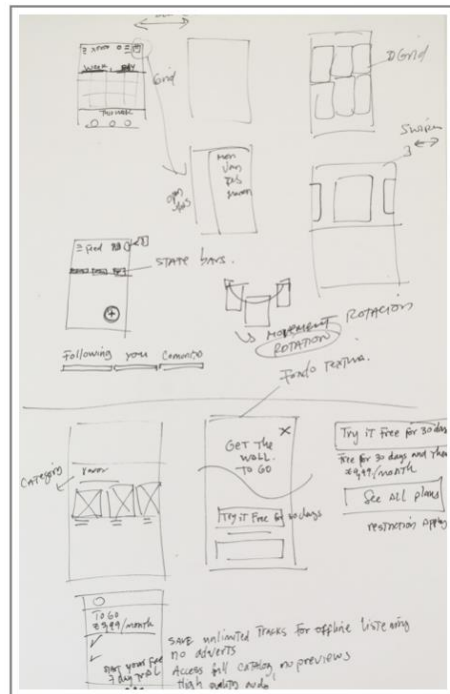 WEEK DAY
Grid
Grid
SWIPE
Mon
Jan
Feb
feed
STATE BARS.
MOVEMENT ROTACION
ROTATION
Following you
Fondo Textura.
GET THE
WALL.
TO GO
X
Try it Free for 30 days
Try it Free for 30 days
Free for 30 days and then
/month
See All plans
restriction Apply
Category
TO GO
/month
START your Free
7 day trial
SAVE unlimited TRACKS for offline listening
no adverts
Access full catalog no previews
High quality audio